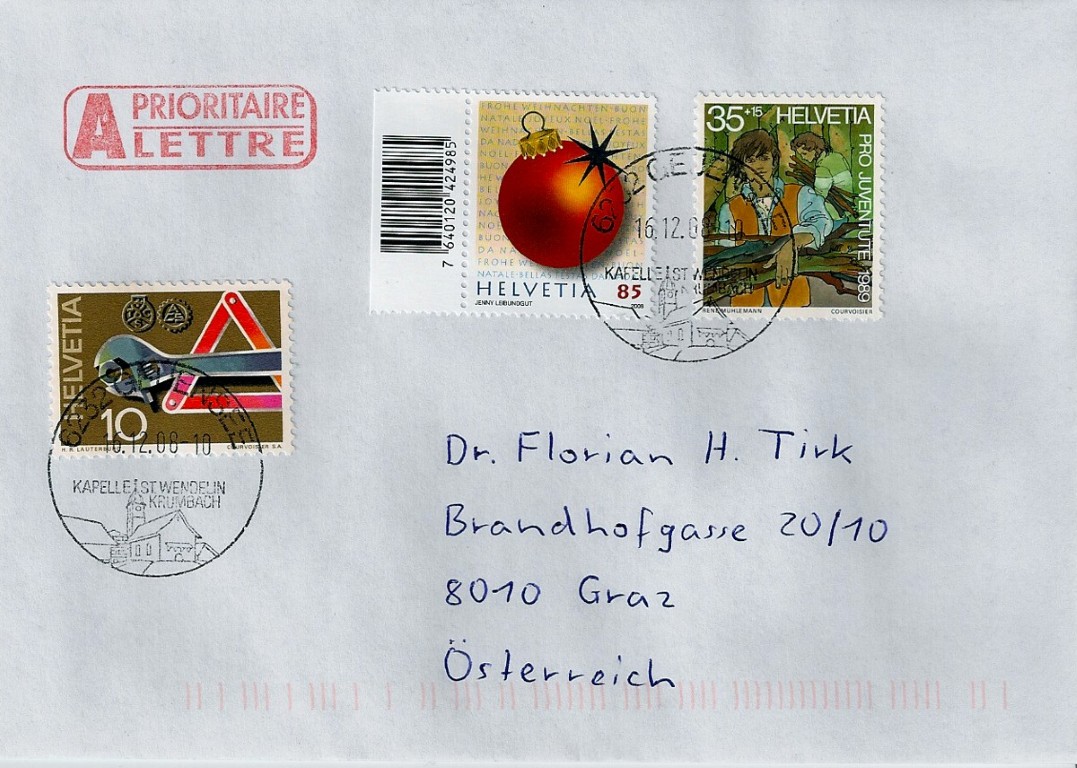 A PRIORITAIRE
LETTRE
7 640120 424985
FROHE WEIHNACHTEN-BUON
NATALE
JOYEUX NOEL-FROHE
HELVETIA 85
JENNY LEIBUNDGUT 2008
35+15 HELVETIA
PRO JUVENTUTE 1989
RENÉ MÜHLEMANN COURVOISIER
16.12.08-10
KAPELLE ST. WENDELIN
KRUMBACH
HELVETIA
10
H. R. LAUTERBURG COURVOISIER S.A.
6232 GEUENSEE
16.12.08-10
KAPELLE ST. WENDELIN
KRUMBACH
Dr. Florian H. Tirk
Brandhofgasse 20/10
8010 Graz
Österreich